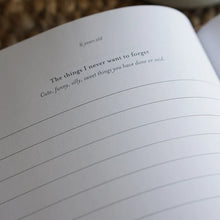 8 years old
The things I never want to forget.
Cute, funny, silly, sweet things you have done or said.